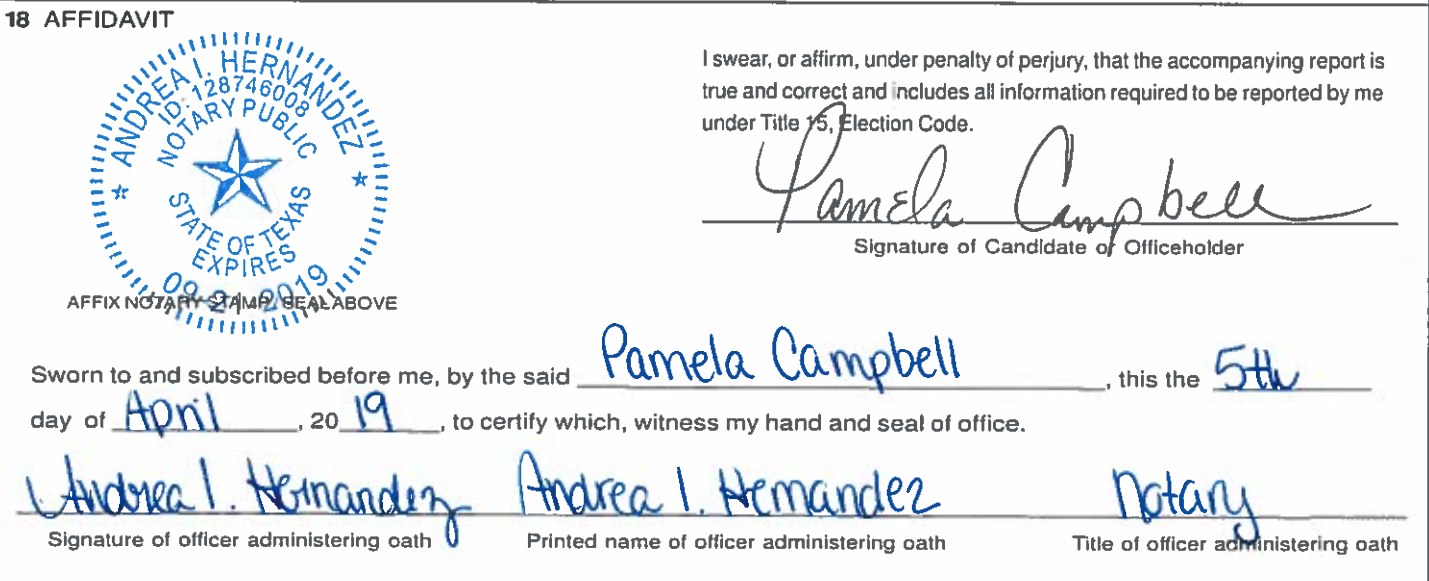 18 AFFIDAVIT
ANDREA I. HERNANDEZ
ID: 128746008
NOTARY PUBLIC
STATE OF TEXAS
EXPIRES
09-21-2019
AFFIX NOTARY STAMP / SEAL ABOVE
I swear, or affirm, under penalty of perjury, that the accompanying report is
true and correct and includes all information required to be reported by me
under Title 15, Election Code.
Pamela Campbell
Signature of Candidate or Officeholder
Sworn to and subscribed before me, by the said Pamela Campbell, this the 5th
day of April, 20 19, to certify which, witness my hand and seal of office.
Andrea I. Hernandez Andrea I. Hernandez Notary
Signature of officer administering oath Printed name of officer administering oath Title of officer administering oath